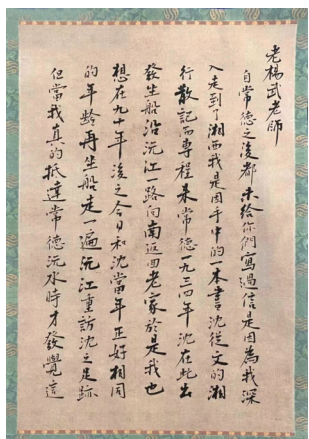 老楊武老師
自常德之後都未給你們寫過信是因為我深
入走到了湘西我是因手中的一本書沈從文的湘
行散記而專程來常德一九三四年沈在此出
發坐船沿沅江一路向南返回老家於是我也
想在九十年後之今日和沈當年正好相同
的年齡再坐船走一遍沅江重訪沈之足跡
但當我真的抵達常德沅水時才發覺這